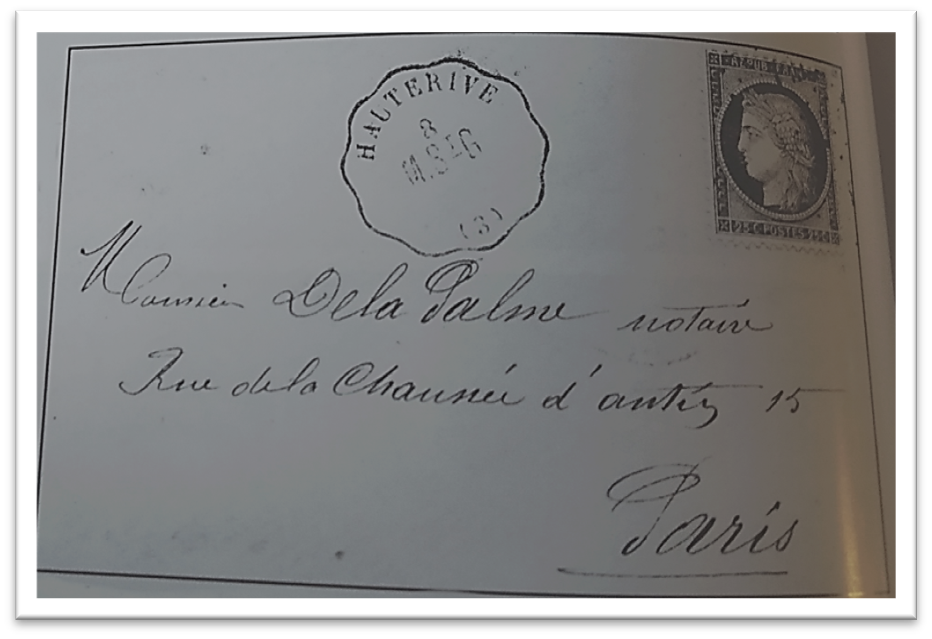 HAUTERIVE
8
M.S
(3)
REPUB FRANC
25 C POSTES 25 C
Monsieur De la Palme notaire
Rue de la Chaussée d'antin 15
Paris